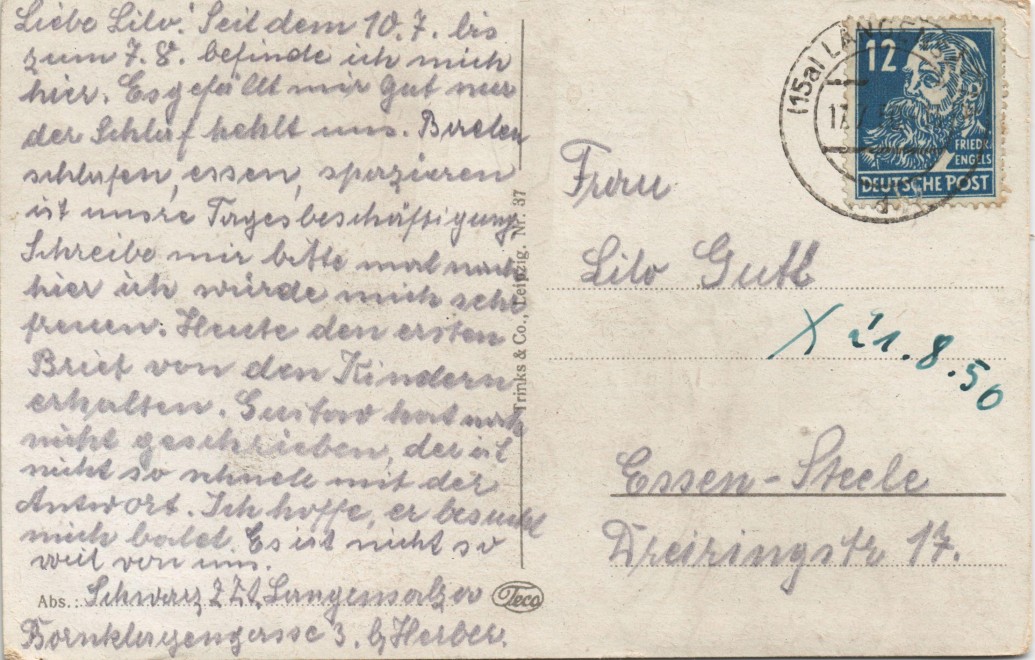 Liebe Lilo! Seit dem 10.7. bis
zum 7.8. befinde ich mich
hier. Es gefällt mir Gut nur
der Schlaf fehlt uns. Baden
schlafen, essen, spazieren
ist unsre Tagesbeschäftigung
Schreibe mir bitte mal nach
hier ich würde mich sehr
freuen. Heute den ersten
Brief von den Kindern
erhalten. Gustav hat noch
nicht geschrieben, der ist
nicht so schnele mit der
Antwort. Ich hoffe, er besucht
mich bald. Es ist nicht so
weit von uns.
Abs.: Schwarz z Zt. Langensalza
3. b/Herber.
Teco
Trinks & Co., Leipzig. Nr. 37
(15a) LANGE
12
FRIEDR.
ENGELS
DEUTSCHE POST
Frau
Lilo Gutt
X 21.8.50
Essen-Steele
Dreiringstr 17.